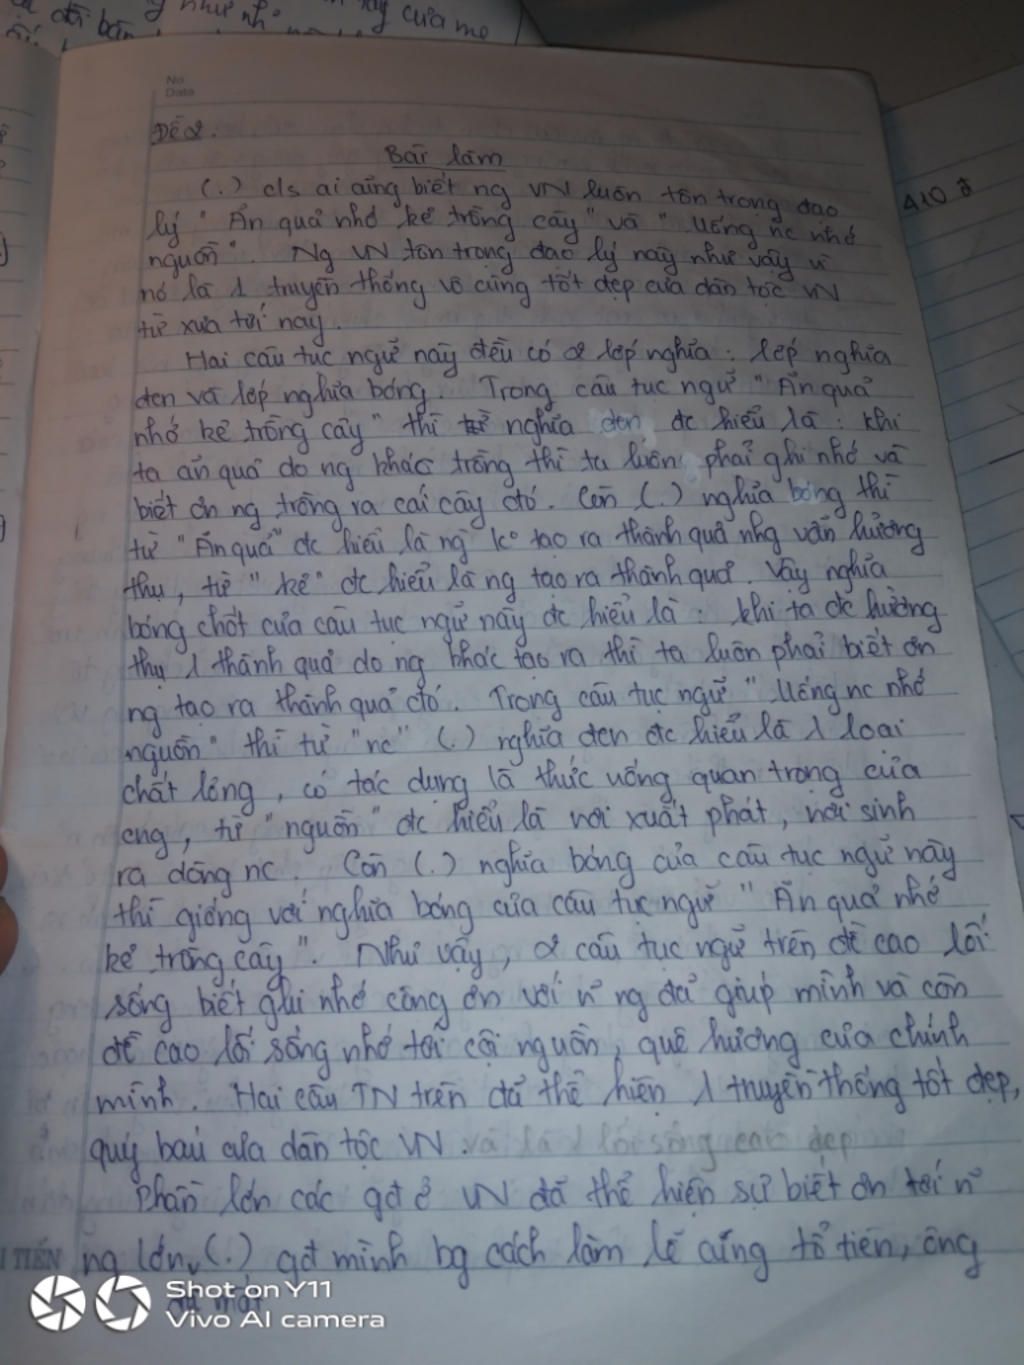 No.
Date
Đề 2:
Bài làm
(.) c/s ai cũng biết ng VN luôn tôn trọng đạo
lý " Ăn quả nhớ kẻ trồng cây " và " Uống nc nhớ
nguồn ". Ng VN tôn trọng đạo lý này như vậy vì
nó là 1 truyền thống vô cùng tốt đẹp của dân tộc VN
từ xưa tới nay.
Hai câu tục ngữ này đều có 2 lớp nghĩa : lớp nghĩa
đen và lớp nghĩa bóng. Trong câu tục ngữ " Ăn quả
nhớ kẻ trồng cây " thì nghĩa đen đc hiểu là : khi
ta ăn quả do ng khác trồng thì ta luôn phải ghi nhớ và
biết ơn ng trồng ra cái cây đó. Còn (.) nghĩa bóng thì
từ " Ăn quả " đc hiểu là ng ko tạo ra thành quả nhg vẫn hưởng
thụ, từ " kẻ " đc hiểu là ng tạo ra thành quả. Vậy nghĩa
bóng chốt của câu tục ngữ này đc hiểu là : khi ta đc hưởng
thụ 1 thành quả do ng khác tạo ra thì ta luôn phải biết ơn
ng tạo ra thành quả đó. Trong câu tục ngữ " Uống nc nhớ
nguồn " thì từ " nc " (.) nghĩa đen đc hiểu là 1 loại
chất lỏng, có tác dụng là thức uống quan trọng của
cng, từ " nguồn " đc hiểu là nơi xuất phát, nơi sinh
ra dòng nc. Còn (.) nghĩa bóng của câu tục ngữ này
thì giống với nghĩa bóng của câu tục ngữ " Ăn quả nhớ
kẻ trồng cây ". Như vậy, 2 câu tục ngữ trên đề cao lối
sống biết ghi nhớ công ơn với n~ ng đã giúp mình và còn
đề cao lối sống nhớ tới cội nguồn, quê hương của chính
mình. Hai câu TN trên đã thể hiện 1 truyền thống tốt đẹp,
quý báu của dân tộc VN. và là 1 lối sống cao đẹp
Phần lớn các gđ ở VN đã thể hiện sự biết ơn tới n~
ng lớn (.) gđ mình bg cách làm lễ cúng tổ tiên, ông
đã mất
A10 đ
TIẾN
Shot on Y11
Vivo AI camera